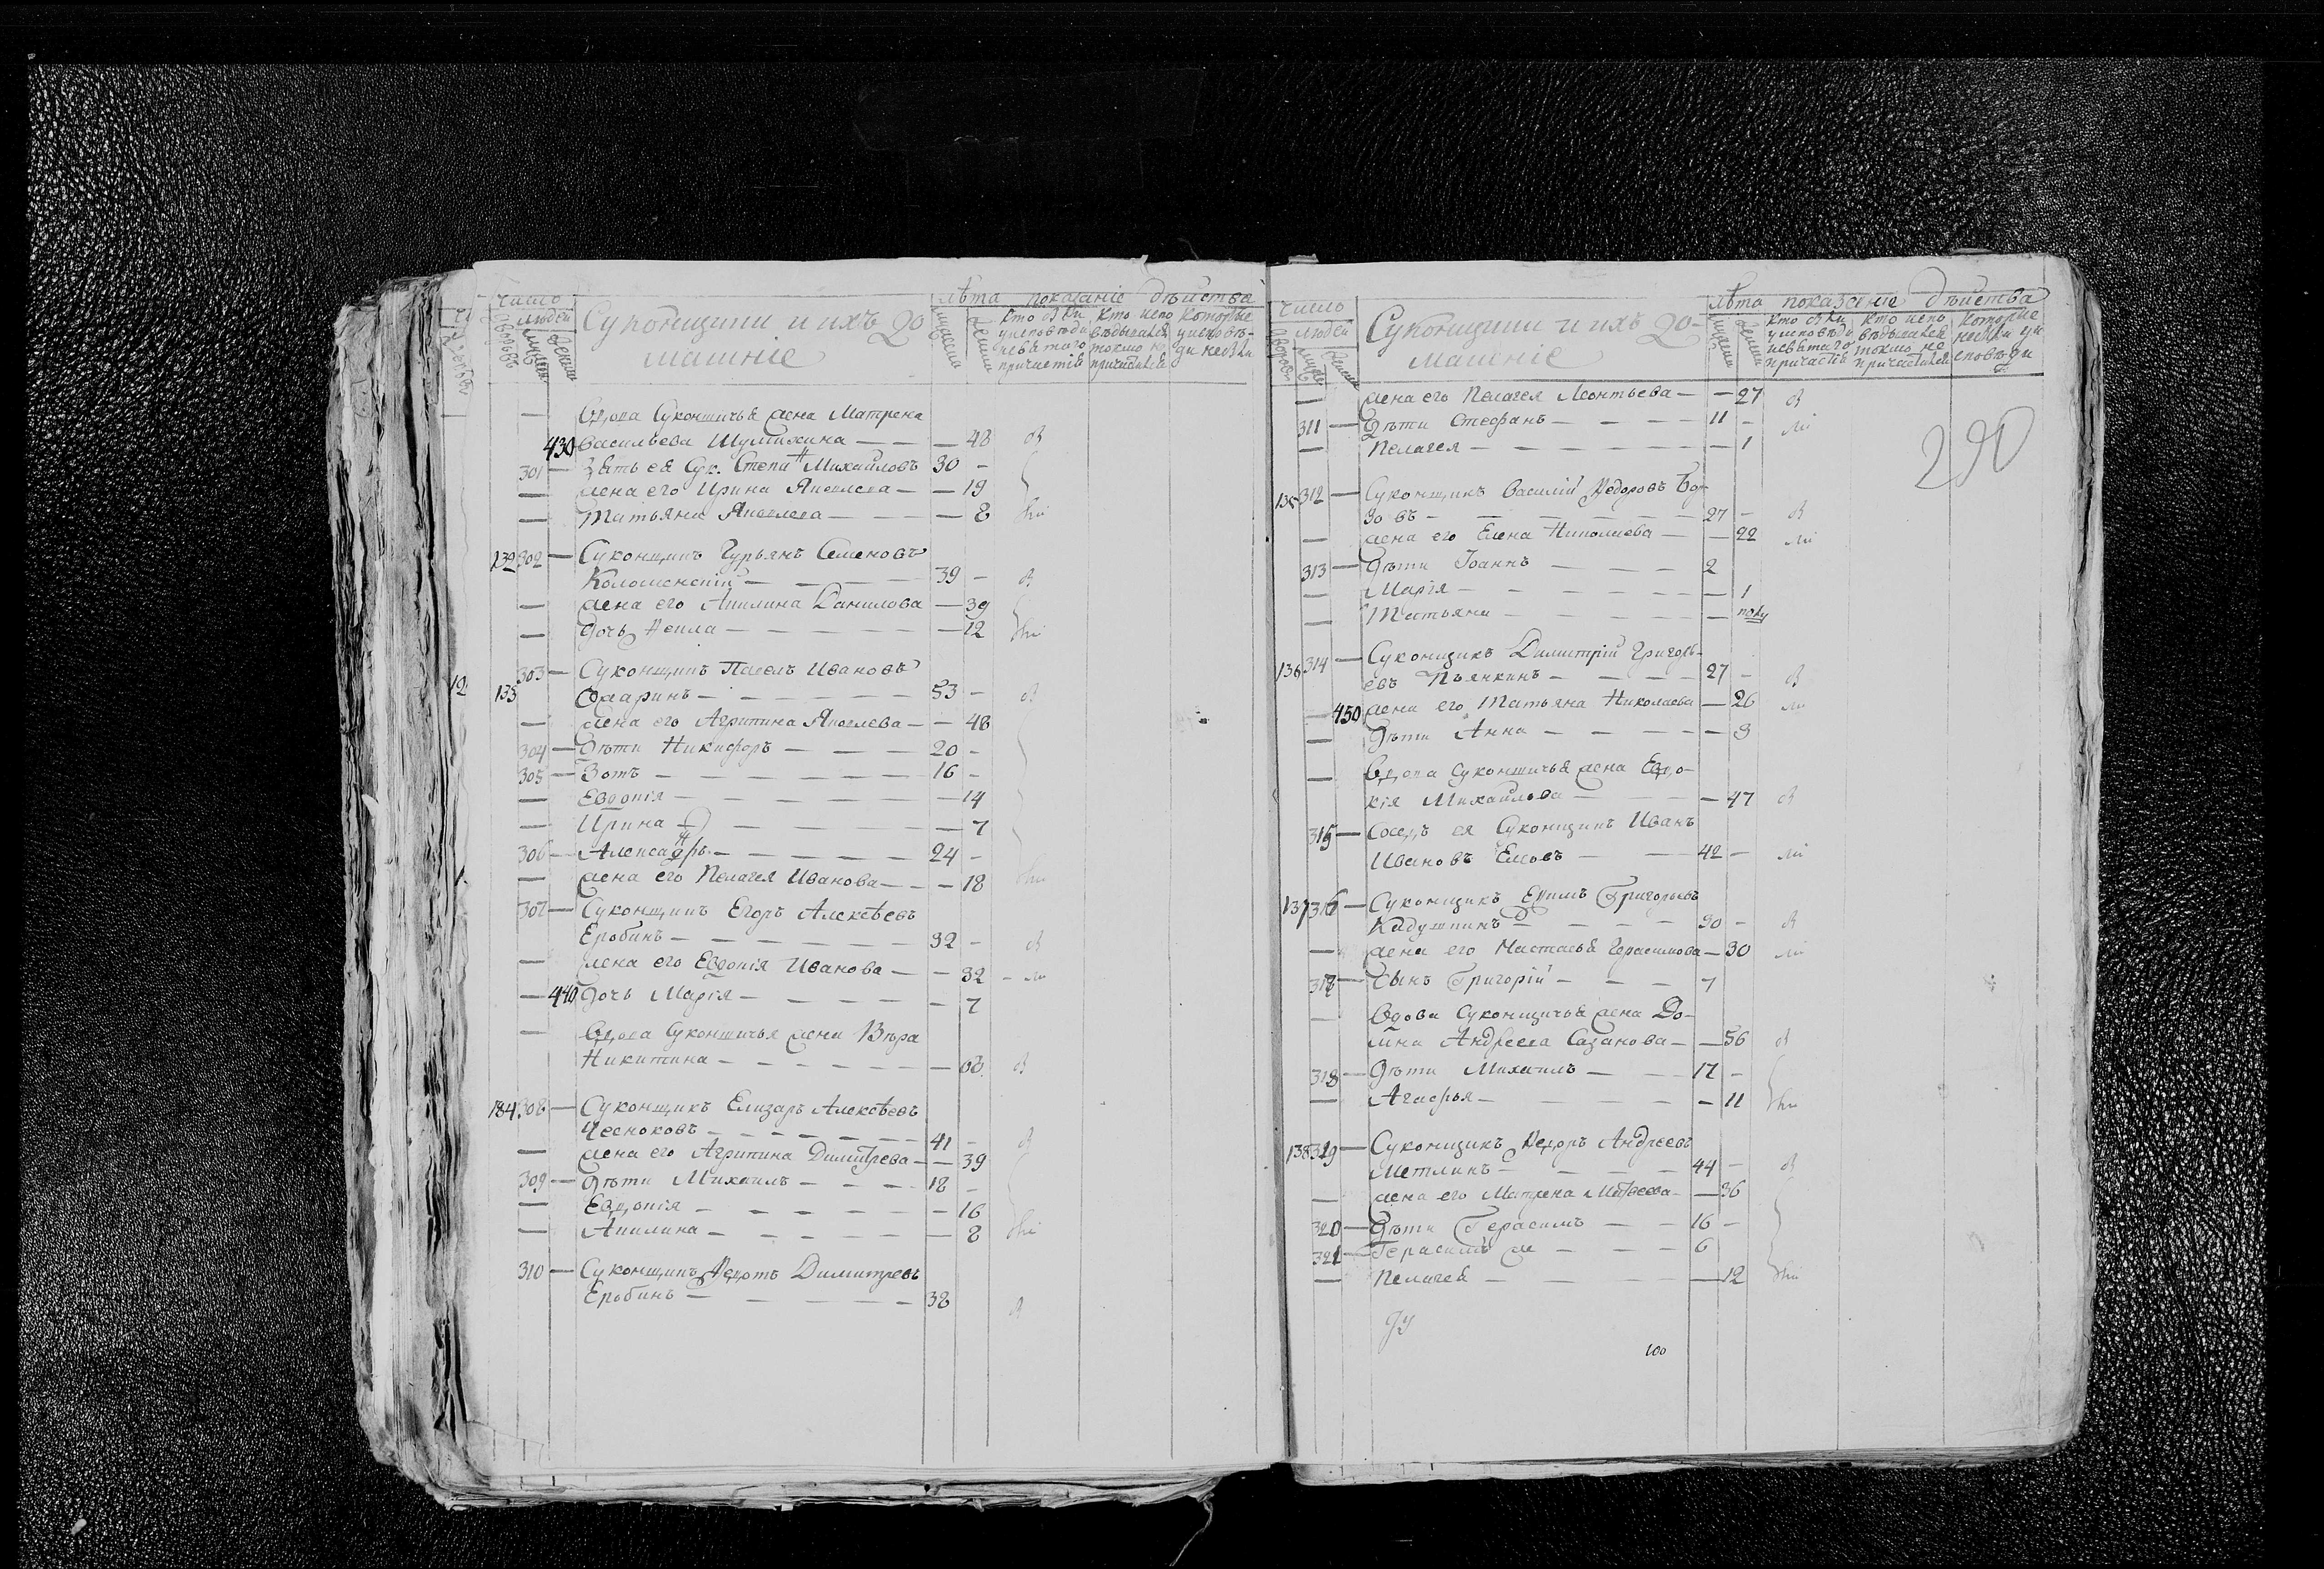 число
людей
дворовъ
мужеска
женска
Суконщики и ихъ до
машніе
лѣта показаніе дѣйства
мужеска
женска
кто были
у исповѣди
и святаго
причастія
кто испо
вѣдывался
токмо не
причастился
которые
у исповѣ-
ди не были
— Вдова Суконшичья жена Матрена
430 Васильева — — — 48
301 — Зять ея Сук. Степанъ Михайловъ 30 -
— жена его Ирина Яковлева — — 19
— Татьяна Яковлева — — — — 8
132 302 — Суконщикъ Гурьянъ Семеновъ
Коломенскій — — — — 39 -
— жена его Акилина Данилова — 39
— Дочь Фекла — — — — — — 12
303 — Суконщикъ Павелъ Ивановъ
133 — — — — — 53 -
— жена его Агрипина Яковлева — — 48
304 — Дѣти Никифоръ — — — 20 -
305 — Зотъ — — — — — 16 -
— Евдокія — — — — — — 14
— Ирина — — — — — 7
306 — Александръ — — — — — 24 -
— жена его Пелагея Иванова — — — 18
307 — Суконщикъ Егоръ Алексѣевъ
Еробинъ — — — — — — 32 -
— жена его Евдокія Иванова — — 32 -
— 440 Дочь Марія — — — — — — 7
— Вдова Суконшичья жена Вѣра
Никитина — — — — — — 60
134 308 — Суконщикъ Елизаръ Алексѣевъ
Чесноковъ — — — — — — 41 -
— жена его Агрипина Димитрева — — 39
309 — Дѣти Михаилъ — — — — 18 -
— Евдокія — — — — — — 16
— Акилина — — — — — — 8
310 — Суконщикъ Федотъ Димитревъ
Еробинъ — — — — — — 38
12
число
людей
дворовъ
мужеска
женска
Суконщики и ихъ до-
машніе
лѣта показаніе дѣйства
мужеска
женска
кто были
у исповѣди
и святаго
причастія
кто испо
вѣдывался
токмо не
причастился
которые
не были у и
сповѣди
290
— жена его Пелагея Леонтьева — — 27
311 — Дѣти Стефанъ — — — — 11 -
— Пелагея — — — — — — — 1
135 312 — Суконщикъ Василій Федоровъ
— — — — — — 27 -
— жена его Елена Николаева — — 22
313 — Дѣти Іоаннъ — — — 2
— Марія — — — — — — — 1
— Татьяна — — — — —
136 314 — Суконщикъ Димитрій Григорь-
евъ Пъянкинъ — — — — 27 -
— 450 жена его Татьяна Николаева — 26
— Дѣти Анна — — — — — 3
— Вдова Суконшичья жена Евдо-
кія Михайлова — — — — 47
315 — Сосѣдъ ея Суконщикъ Иванъ
Ивановъ — — 42 -
137 316 — Суконщикъ Ефимъ Григорьевъ
Кадушкинъ — — — — 30 -
— жена его Настасья Герасимова — 30
317 — Сынъ Григорій — — — 7
— Вдова Суконщичья жена До-
мна Андреева Сазанова — — 56
318 — Дѣти Михаилъ — — 17 -
— Агафья — — — — — — 11
138 319 — Суконщикъ Федоръ Андреевъ
Метлинъ — — — — — 44 -
— жена его Матрена Матвеева — — 36
320 — Дѣти Герасимъ — — 16 -
321 — Герасимъ же — — — 6
— Пелагея — — — — — 12
100